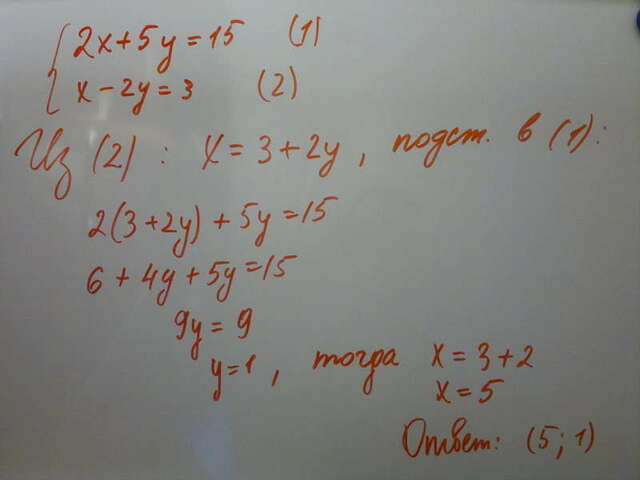 2x+5y=15 (1)
x-2y=3 (2)
Из (2): x=3+2y, подст. в (1):
2(3+2y)+5y=15
6+4y+5y=15
9y=9
y=1, тогда x=3+2
x=5
Ответ: (5;1)